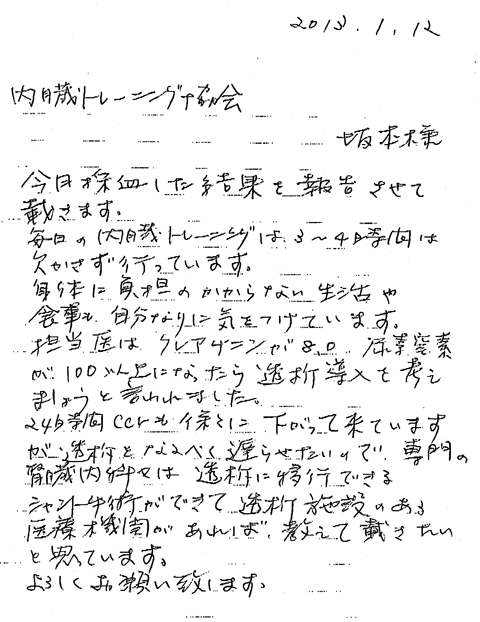 2013.1.12
内臓トレーニング協会
坂本様
今日採血した結果を報告させて
戴きます。
毎日の内臓トレーニングは3〜4時間は
欠かさず行っています。
身体に負担のかからない生活や
食事も自分なりに気をつけています。
担当医はクレアチニンが8.0 尿素窒素
が100以上になったら透析導入を考え
ましょうと言われました。
24時間ccrも徐々に下がって来ています
が透析となるべく遅らせたいので、専門の
腎臓内科又は透析に移行できる
シャント手術ができて透析施設のある
医療機関があれば、教えて戴きたい
と思っています。
よろしくお願い致します。